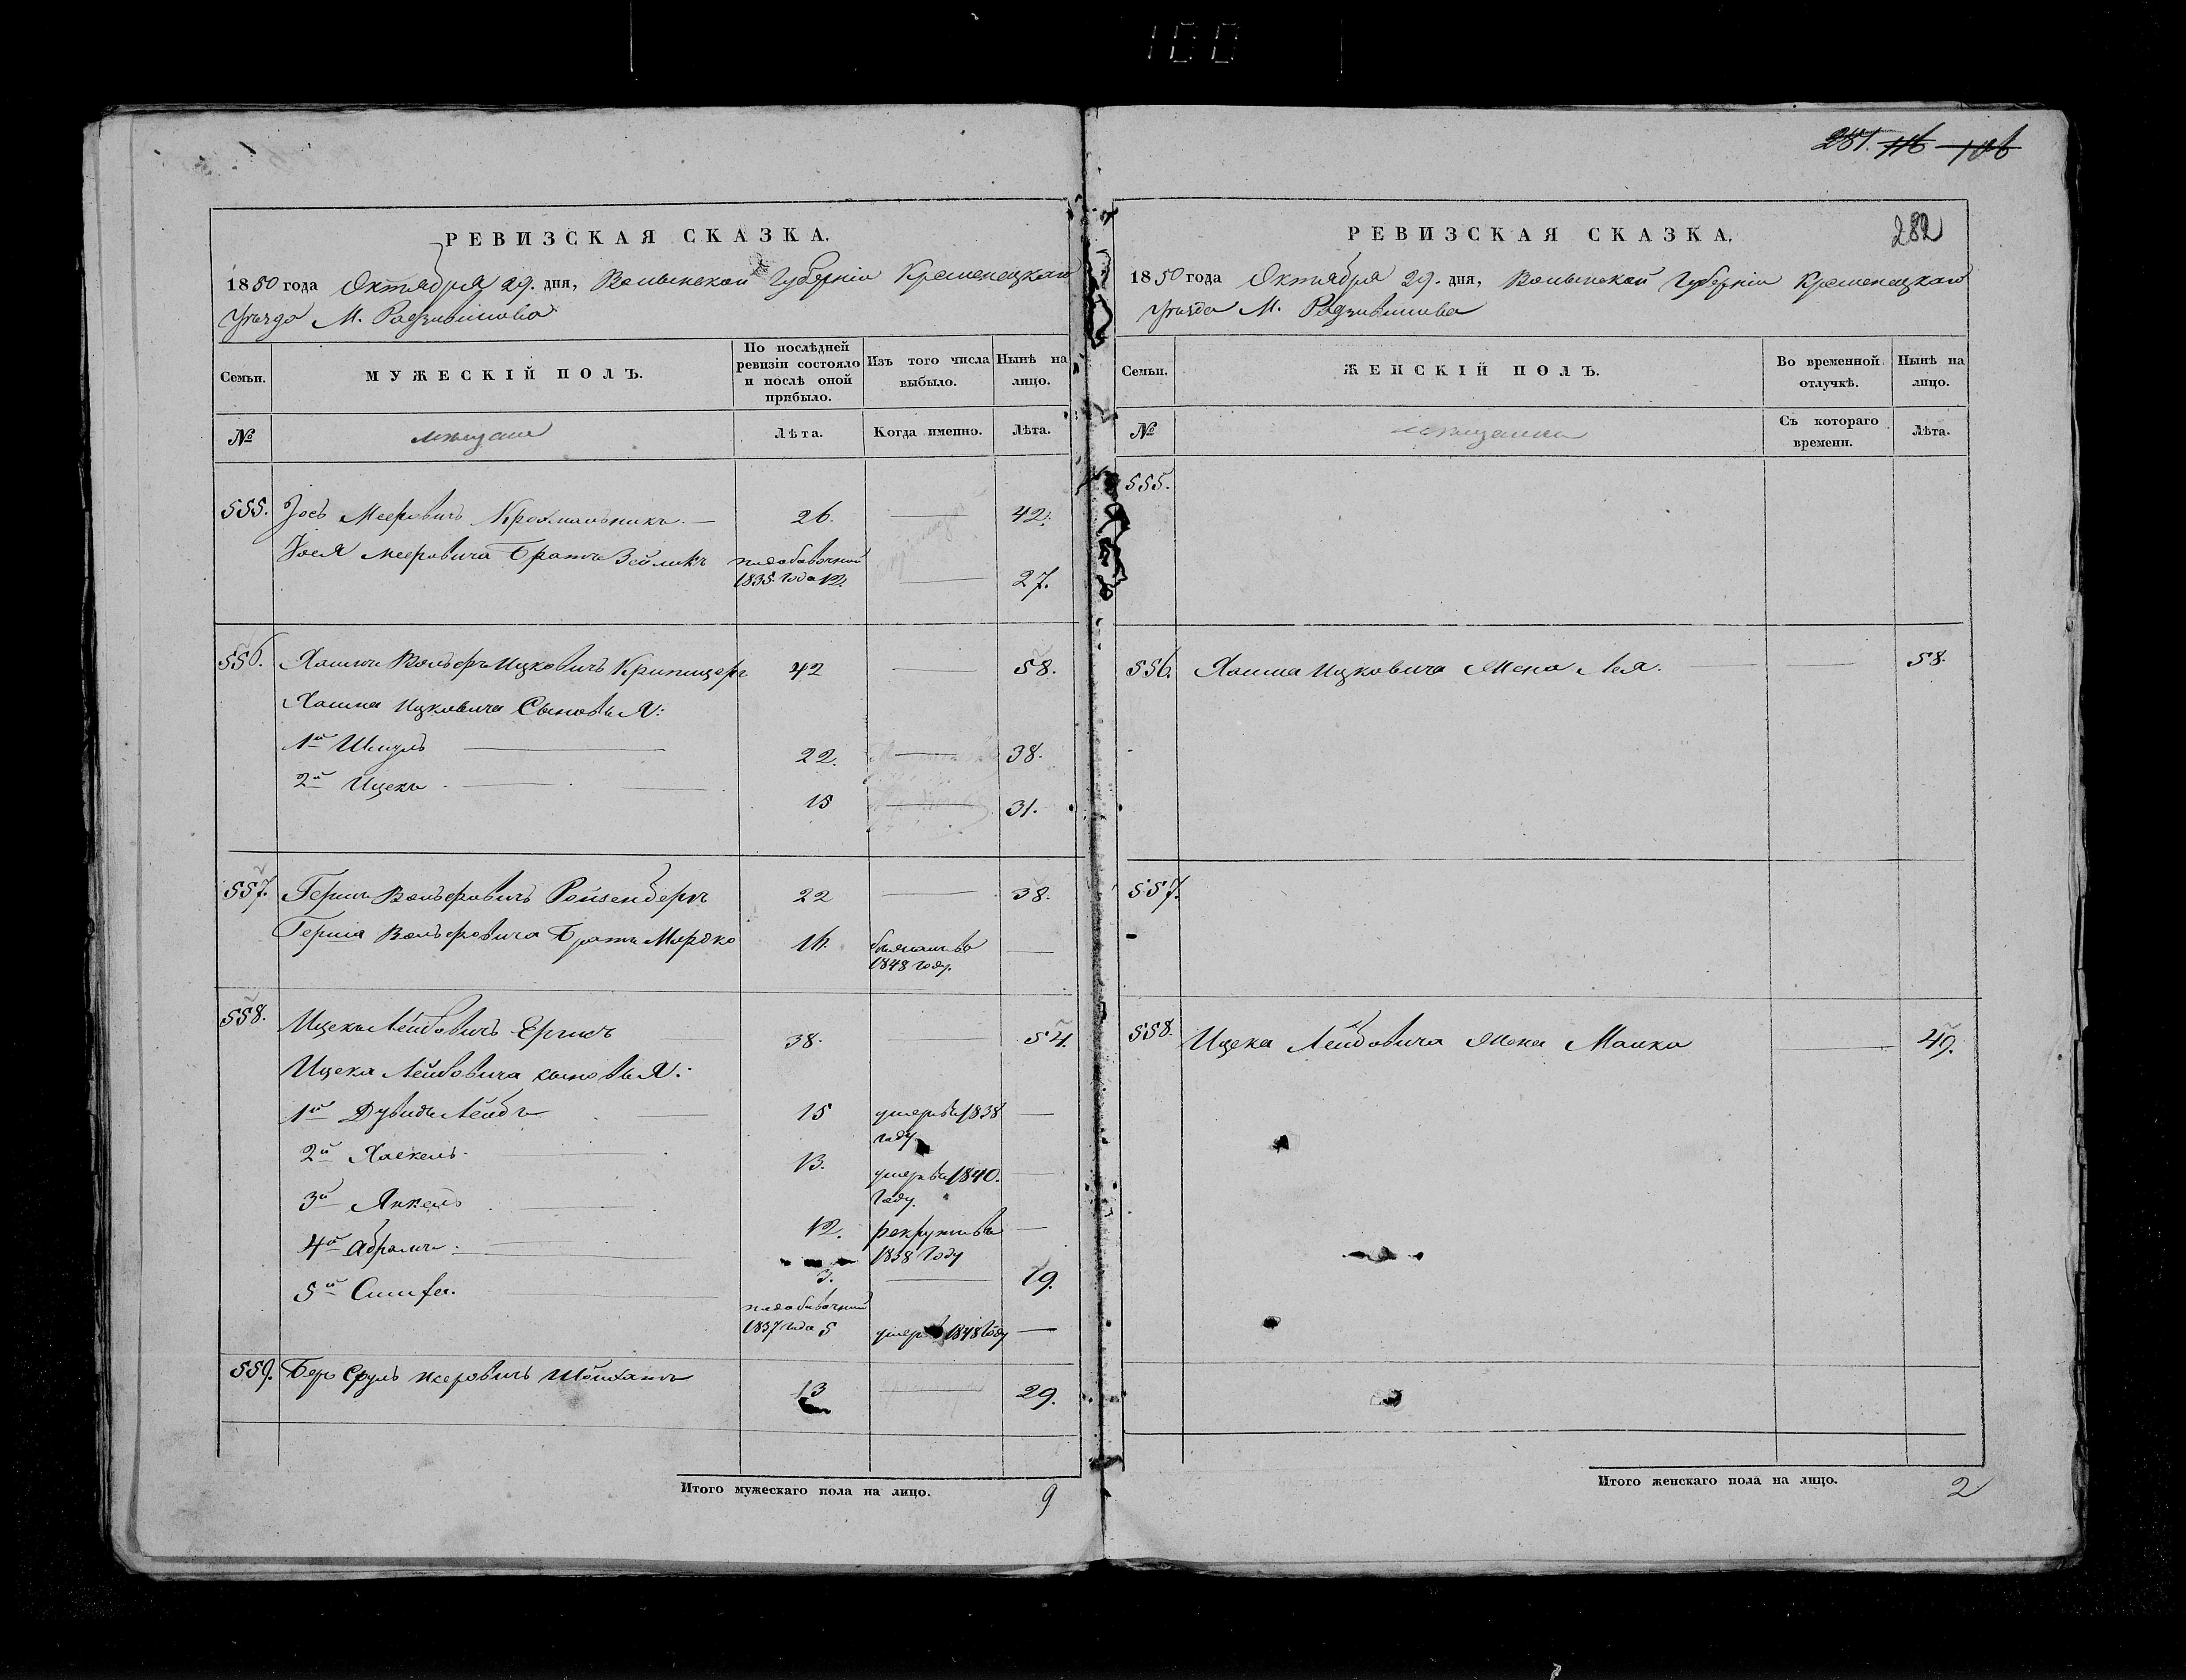 100
281. 116 106
РЕВИЗСКАЯ СКАЗКА.
1850 года Октября 29. дня, Волынской Губернiи Кременецкаго
Уѣзда М. Радзивилова
Семьи.
МУЖЕСКІЙ ПОЛЪ.
По послѣдней ревизіи состояло и послѣ оной прибыло.
Изъ того числа выбыло.
Нынѣ на лицо.
№
мѣщане
Лѣта.
Когда именно.
Лѣта.
555. Іось Мееровичъ Крохмальникъ. — 26. — 42.
Іося Мееровича Братъ Зейликъ
1835 года 12. — 27.
556. Хаимъ Вольфъ Ицковичъ 42 — 58.
Хаима Ицковича Сыновья:
1й Шмуль — 22. — 38.
2й Ицекъ — 15 — 31.
557. Гершъ Вольфовичъ Ройзенбергъ 22 — 38.
Герша Вольфовича Братъ Мордко 16. —
1848 году.
558. Ицекъ Лейбовичъ 38. — 54.
Ицека Лейбовича сыновья:
1й Дувидъ Лейбъ — 15 умеръ въ 1838 —
году
2й Хаскель — 13. умеръ въ 1840. —
году.
3й Янкель — 12. рекрутъ въ —
1838 году
4й Абрамъ — 3. — 19.
5й
1837 года 5 умеръ 1848 году —
559. Беръ Сруль Мееровичъ 13 — 29.
Итого мужескаго пола на лицо. 9
РЕВИЗСКАЯ СКАЗКА.
282
1850 года Октября 29. дня, Волынской Губернiи Кременецкаго
Уѣзда М. Радзивилова
Семьи.
ЖЕНСКІЙ ПОЛЪ.
Во временной отлучкѣ.
Нынѣ на лицо.
№
мѣщанки
Съ котораго времени.
Лѣта.
555.
556. Хаима Ицковича Жена Лея. — 58.
557.
558. Ицека Лейбовича Жена Малка — 49.
Итого женскаго пола на лицо. 2